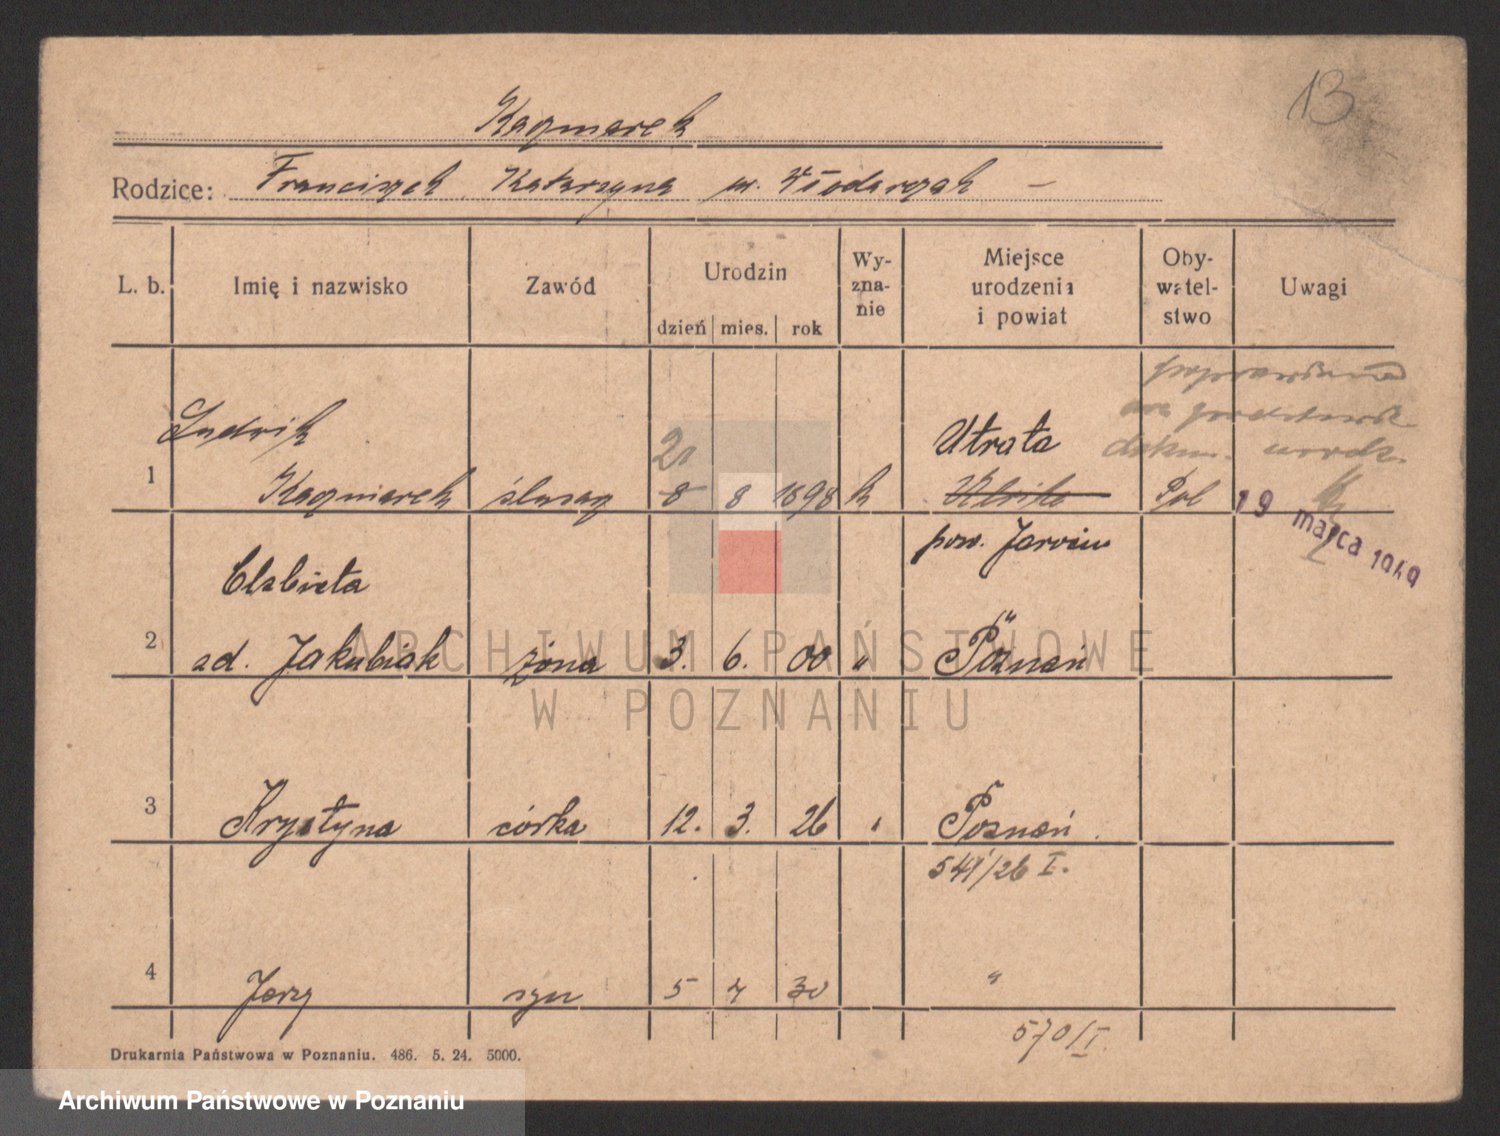 13
Kaczmarek
Rodzice: Franciszek Katarzyna ur. Włodarczak —
L. b. Imię i nazwisko Zawód Urodzin dzień mies. rok Wyznanie Miejsce urodzenia i powiat Obywatelstwo Uwagi
poprawiono
na podstawie
dokum. urodz.
Ludwik Utrata
1 Kaczmarek ślusarz 8 8 1898 k Pol
19 marca 1949
pow. Jarocin
Elżbieta
2 ad. Jakubiak żona 3. 6. 00 " Poznań
3 Krystyna córka 12. 3. 26 Poznań
541/26 I.
4 Jerzy syn 5 7 30 "
570/I.
Drukarnia Państwowa w Poznaniu. 486. 5. 24. 5000.
ARCHIWUM PAŃSTWOWE
W POZNANIU
Archiwum Państwowe w Poznaniu